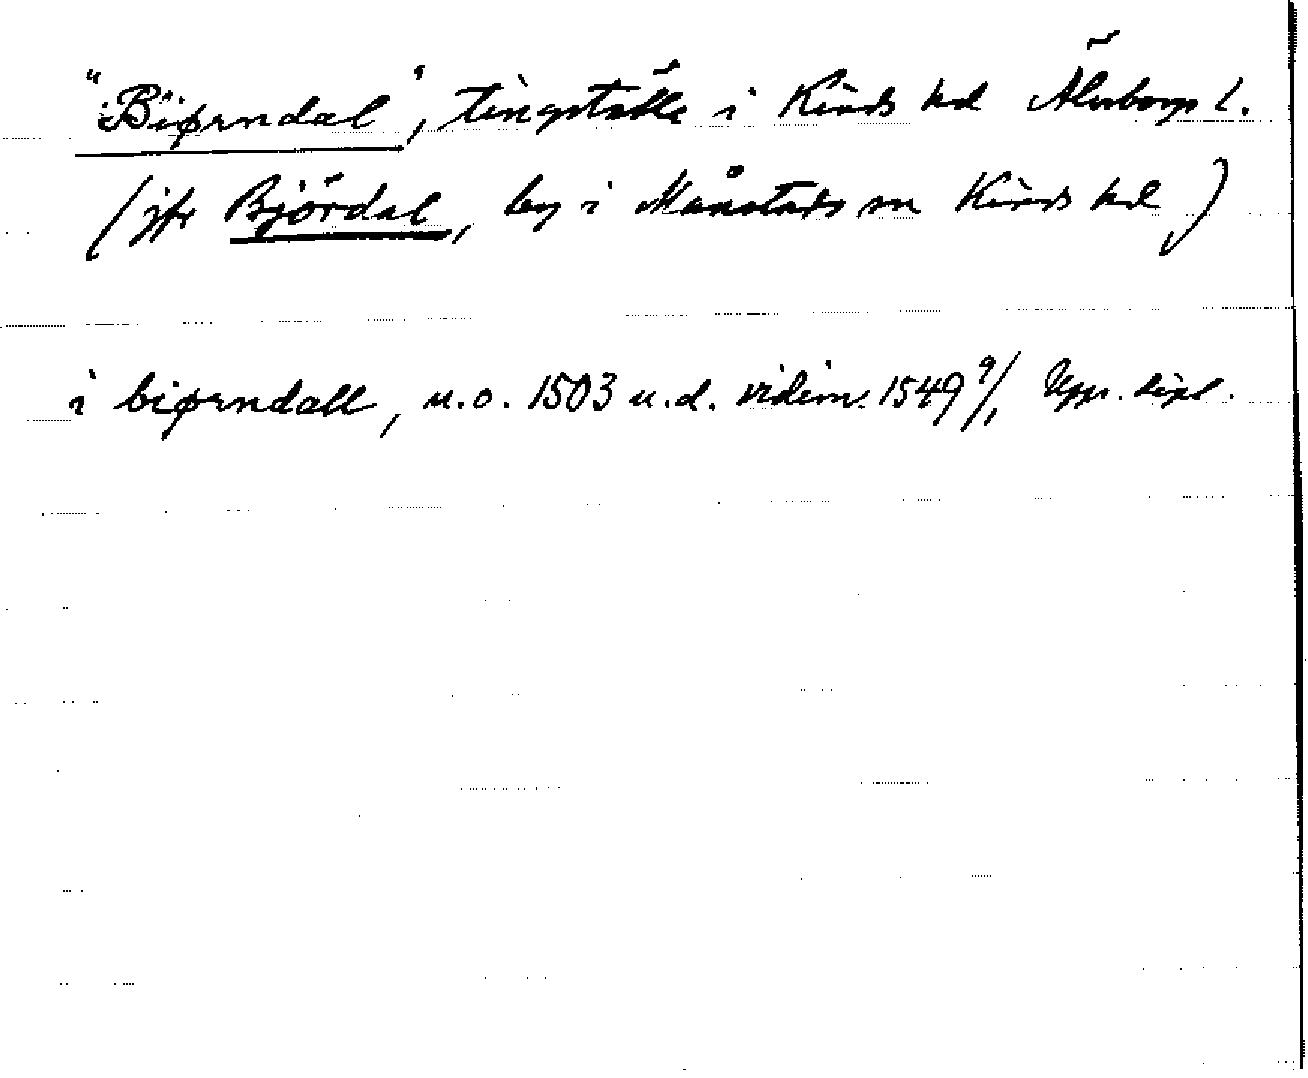 "Biørndal", tingställe i Kinds hd Älvsborgs l.
(jfr Björdal, by i Månstads sn Kinds hd)
i biørndall, u.o. 1503 u.d. vidim. 1549 9/1 Upps. dipl.